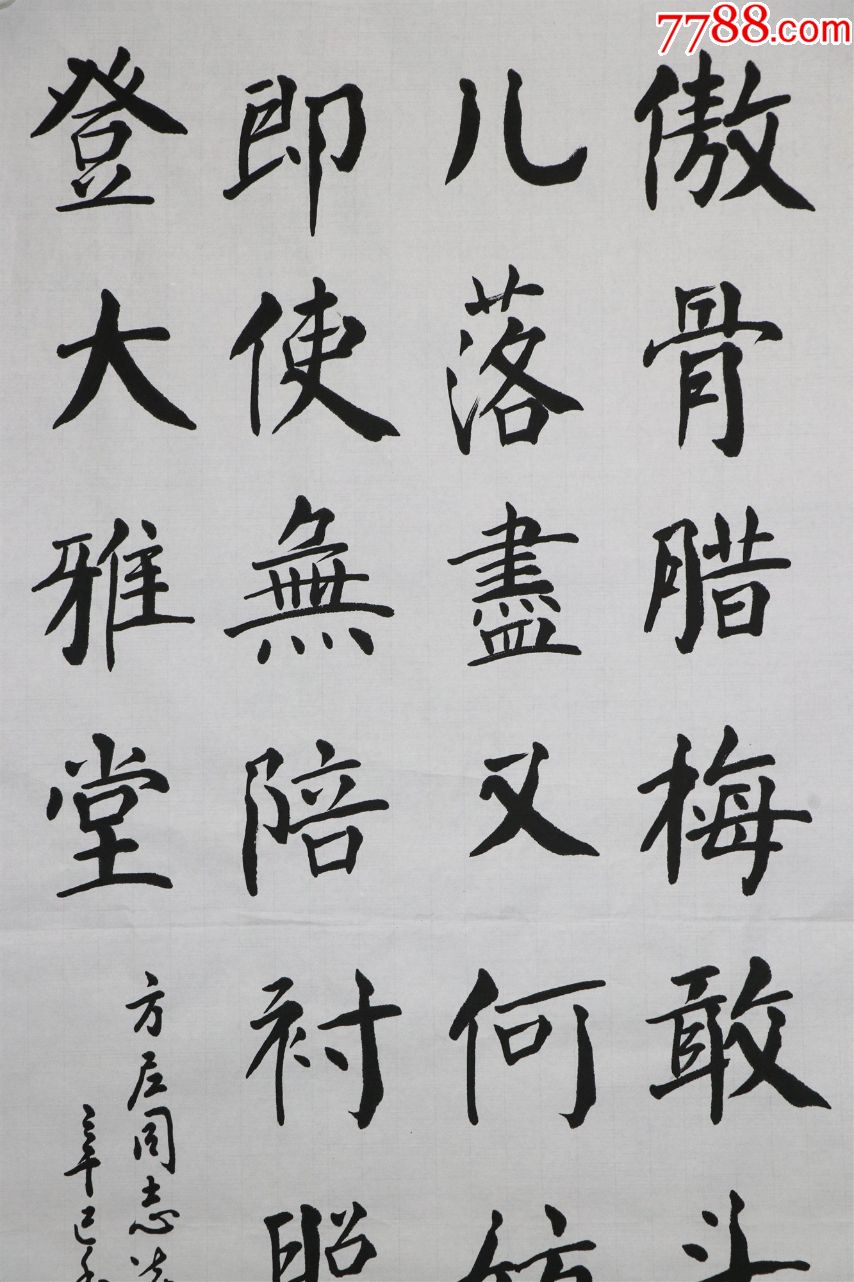 7788.com
傲骨腊梅敢斗
儿落盡又何妨
即使無陪衬
登大雅堂
方同志
辛巳